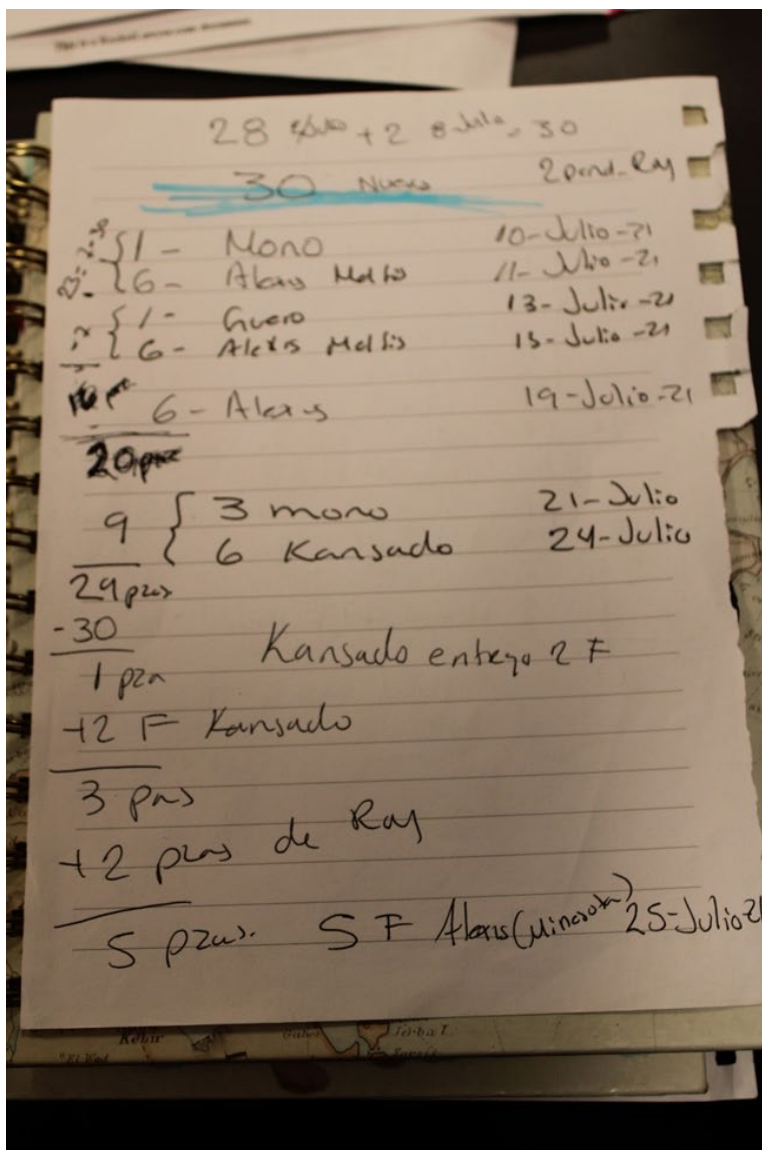 28 + 2 8-Julio = 30
30 Nuevo 2 pend. Ray
1 - Mono 10-Julio-21
6 - Alexis Mellis 11-Julio-21
1 - Guero 13-Julio-21
6 - Alexis Mellis 15-Julio-21
6 - Alexis 19-Julio-21
20 pza
9 { 3 mono 21-Julio
6 Kansado 24-Julio
29 pzas
-30
1 pza Kansado entrego 2 F
+2 F Kansado
3 pzas
+2 pzas de Ray
5 pzas. 5 F Alexis (Minesota) 25-Julio-21